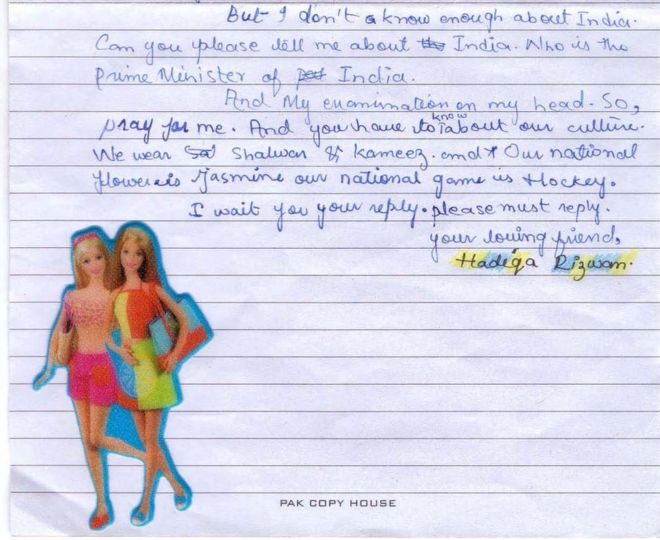 But I don't know enough about India.
Can you please tell me about India. Who is the
Prime Minister of India.
And My examination on my head. So,
pray for me. And you have to know about our culture.
We wear Shalwar & Kameez. and Our national
flower is Jasmine our national game is Hockey.
I wait for your reply. please must reply.
your loving friend,
Hadiqa Rizwan.
PAK COPY HOUSE